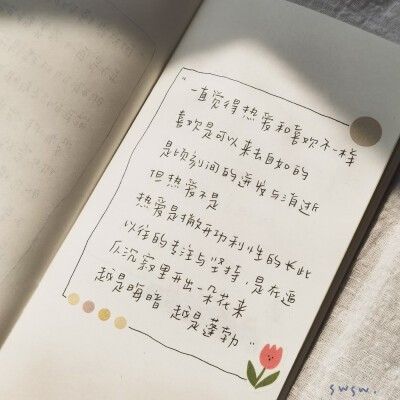 “一直觉得热爱和喜欢不一样
喜欢是可以来去自如的
是顷刻间的迸发与消逝
但热爱不是
热爱是撇开功利性的长此
以往的专注与坚持，是在追
从沉寂里开出一朵花来
越是晦暗 越是蓬勃”
swsw.